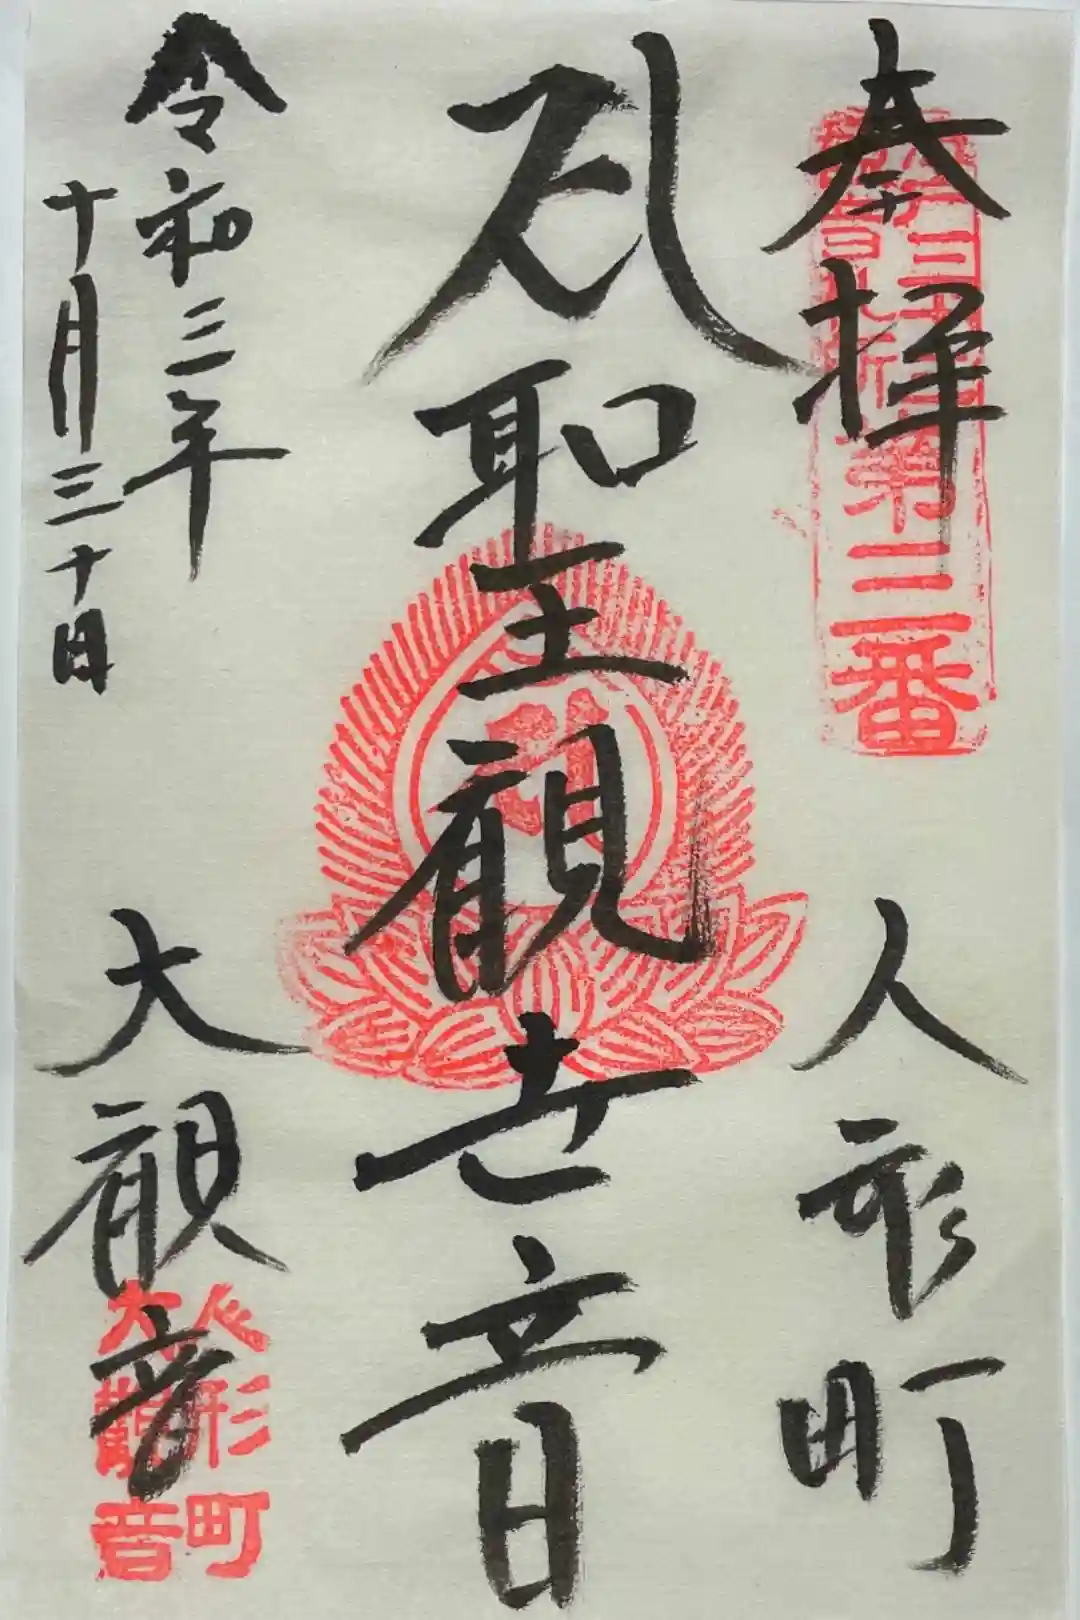 奉拝
人形町
聖観世音
令和三年
十月三十日
大観音
三番
人形町
大観音